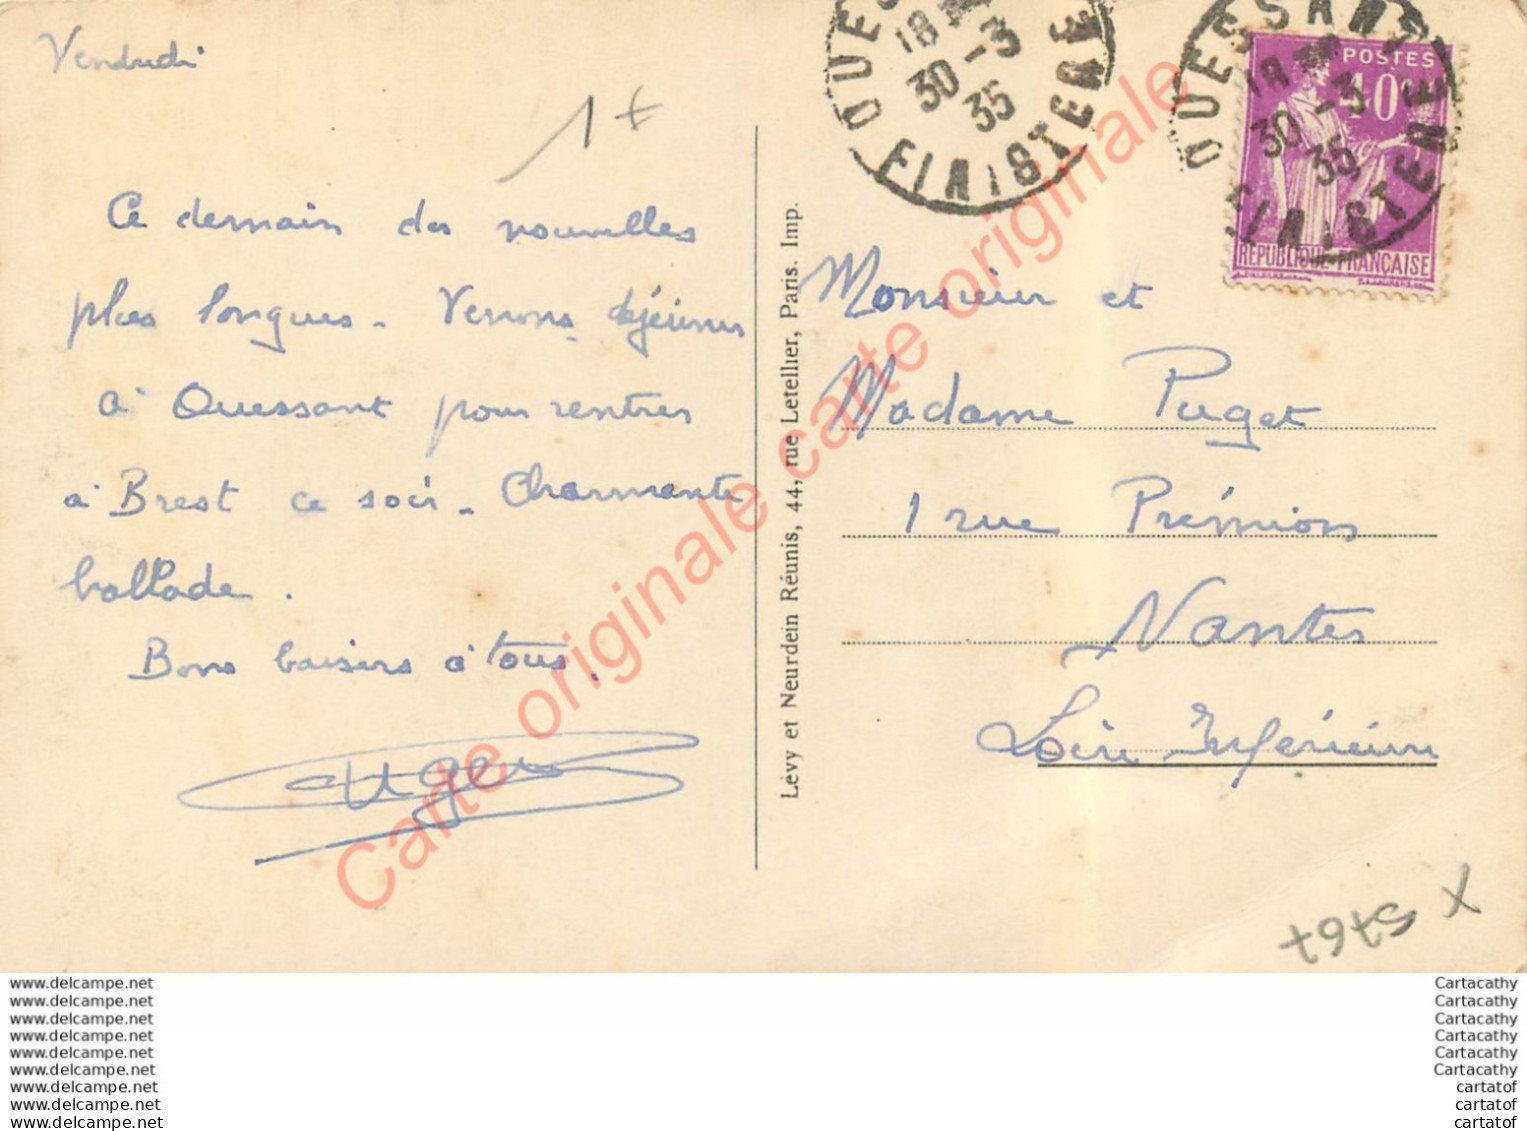 Vendredi
1 €
A demain des nouvelles
plus longues - Venons déjeuner
à Ouessant pour rentrer
à Brest ce soir - Charmante
ballade.
Bons baisers à tous.
Lévy et Neurdein Réunis, 44, rue Letellier, Paris. Imp.
OUESSANT
18
30 -3
35
FINISTERE
OUESSANT
18
30 -3
35
FINISTERE
POSTES
40c
REPUBLIQUE FRANÇAISE
Monsieur et
Madame Puget
1 rue Prémion
Nantes
Loire Inférieure
X 5767
Carte originale carte originale
www.delcampe.net
www.delcampe.net
www.delcampe.net
www.delcampe.net
www.delcampe.net
www.delcampe.net
www.delcampe.net
www.delcampe.net
www.delcampe.net
Cartacathy
Cartacathy
Cartacathy
Cartacathy
Cartacathy
Cartacathy
cartatof
cartatof
cartatof